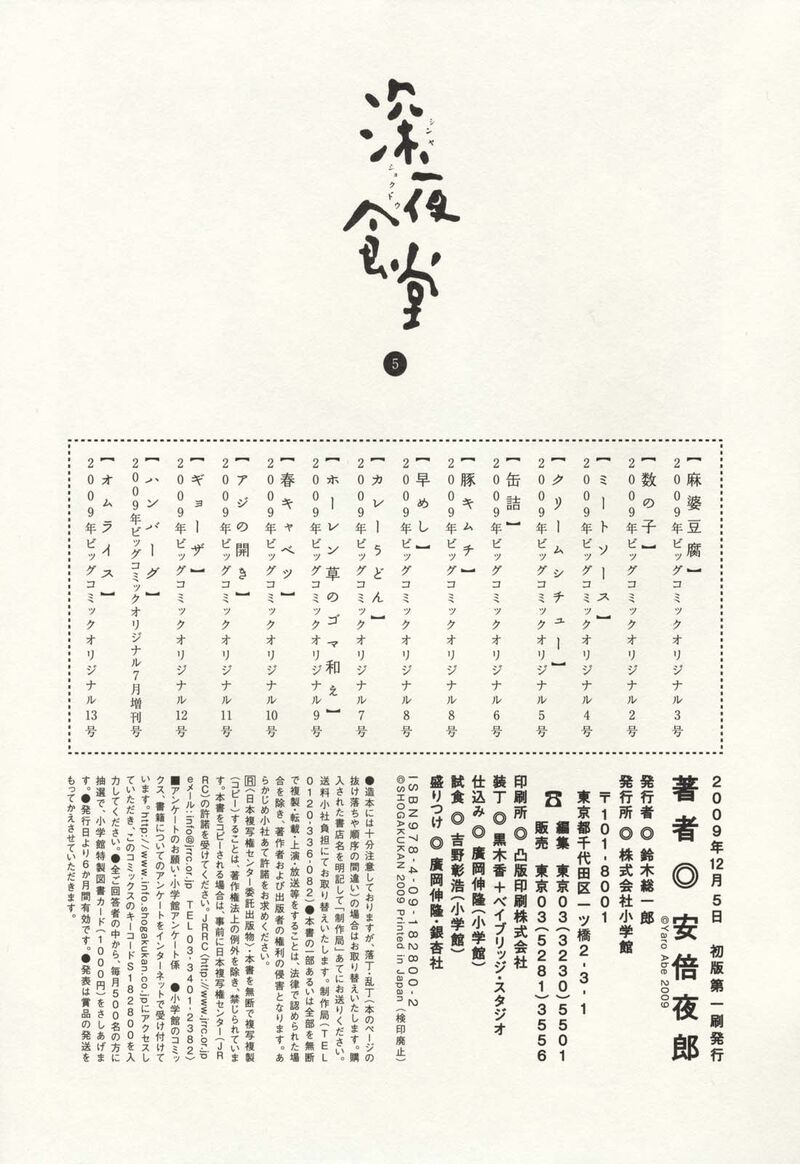 深夜食堂
シンヤ
ショクドウ
5
【麻婆豆腐】
2009年ビッグコミックオリジナル3号
【数の子】
2009年ビッグコミックオリジナル2号
【ミートソース】
2009年ビッグコミックオリジナル4号
【クリームシチュー】
2009年ビッグコミックオリジナル5号
【缶詰】
2009年ビッグコミックオリジナル6号
【豚キムチ】
2009年ビッグコミックオリジナル8号
【早めし】
2009年ビッグコミックオリジナル8号
【カレーうどん】
2009年ビッグコミックオリジナル7号
【ホーレン草のゴマ和え】
2009年ビッグコミックオリジナル9号
【春キャベツ】
2009年ビッグコミックオリジナル10号
【アジの開き】
2009年ビッグコミックオリジナル11号
【ギョーザ】
2009年ビッグコミックオリジナル12号
【ハンバーグ】
2009年ビッグコミックオリジナル7月増刊号
【オムライス】
2009年ビッグコミックオリジナル13号
2009年12月5日 初版第一刷発行
著者◎安倍夜郎
©Yaro Abe 2009
発行者◎鈴木総一郎
発行所◎株式会社小学館
〒101-8001
東京都千代田区一ツ橋2-3-1
☎ 編集 東京03(3230)5501
販売 東京03(5281)3556
印刷所◎凸版印刷株式会社
装丁◎黒木香+ベイブリッジ・スタジオ
仕込み◎廣岡伸隆(小学館)
試食◎吉野彰浩(小学館)
盛りつけ◎廣岡伸隆・銀杏社
ISBN978-4-09-182800-2
©SHOGAKUKAN 2009 Printed in Japan (検印廃止)
●造本には十分注意しておりますが、落丁・乱丁(本のページの
抜け落ちや順序の間違い)の場合はお取り替えいたします。購
入された書店名を明記して「制作局」あてにお送りください。
送料小社負担にてお取り替えいたします。制作局(TEL
0120-336-082)●本書の一部あるいは全部を無断
で複製・転載・上演・放送等をすることは、法律で認められた場
合を除き、著作者および出版者の権利の侵害となります。あ
らかじめ小社あて許諾をお求めください。
Ⓡ(日本複写権センター委託出版物)・本書を無断で複写複製
(コピー)することは、著作権法上の例外を除き、禁じられていま
す。本書をコピーされる場合は、事前に日本複写権センター(JR
RC)の許諾を受けてください。JRRC〈http://www.jrrc.or.jp
eメール:info@jrrc.or.jp TEL03-3401-2382〉
■アンケートのお願い・小学館アンケート係 ●小学館のコミッ
クス、書籍についてのアンケートをインターネットで受け付けて
います。http://www.info.shogakukan.co.jpにアクセスし
ていただき、このコミックスのキーコードS182800を入
力してください。●全ご回答者の中から、毎月500名の方に
抽選で、小学館特製図書カード(1000円)をさしあげま
す。●発行日より6か月間有効です。●発表は賞品の発送を
もってかえさせていただきます。